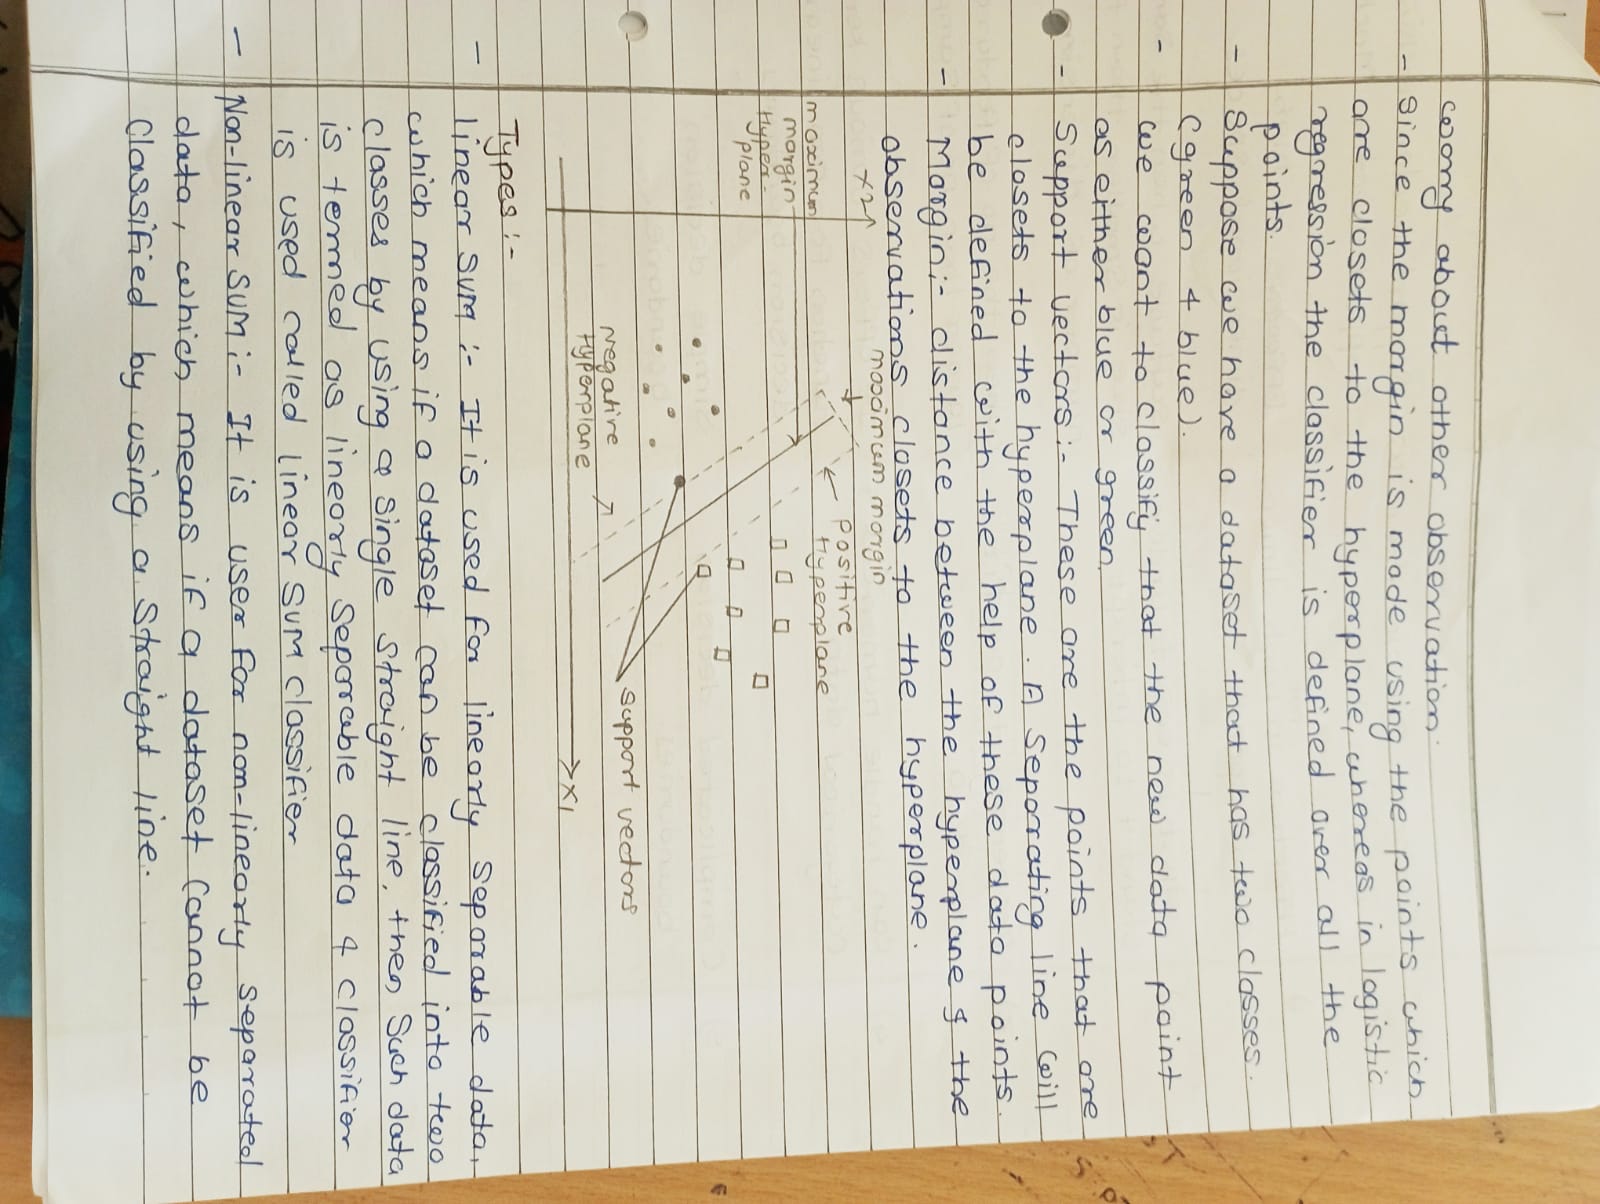 worry about other observation.
- Since the margin is made using the points which
are closets to the hyperplane, whereas in logistic
regression the classifier is defined over all the
points.
- Suppose we have a dataset that has two classes.
(green & blue).
- we want to classify that the new data point
as either blue or green.
- Support vectors :- These are the points that are
closets to the hyperplane. A Separating line will
be defined with the help of these data points.
- Margin :- distance between the hyperplane & the
observations closets to the hyperplane.
maximum margin
x2
positive
Hyperplane
maximum
margin
Hyper-
plane
support vectors
Negative
Hyperplane
x1
Types :-
- linear SVM :- It is used for linearly separable data,
which means if a dataset can be classified into two
classes by using a single straight line, then such data
is termed as linearly separable data & classifier
is used called linear SVM classifier
- Non-linear SVM :- It is user for non-linearly separated
data, which means if a dataset cannot be
Classified by using a straight line.